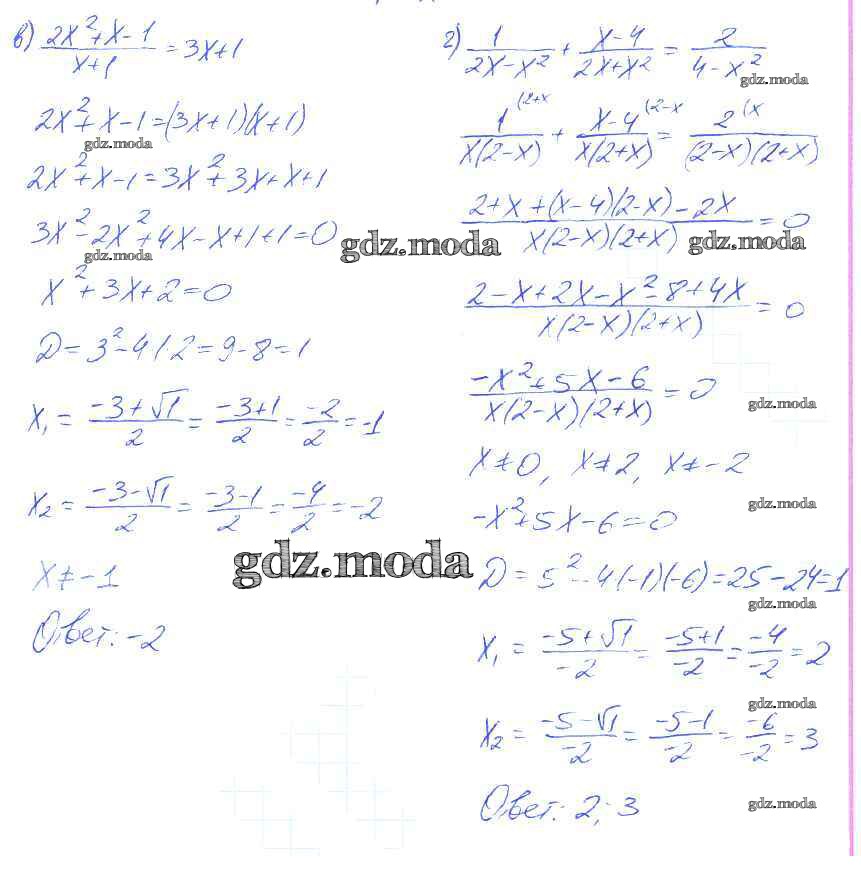 в) (2x²+x-1)/(x+1) = 3x+1
2x²+x-1=(3x+1)(x+1)
gdz.moda
2x²+x-1=3x²+3x+x+1
3x²-2x²+4x-x+1+1=0
gdz.moda
gdz.moda
x²+3x+2=0
D=3²-4·1·2=9-8=1
x₁ = (-3+√1)/2 = (-3+1)/2 = -2/2 = -1
x₂ = (-3-√1)/2 = (-3-1)/2 = -4/2 = -2
gdz.moda
x≠-1
Ответ: -2
г) 1/(2x-x²) + (x-4)/(2x+x²) = 2/(4-x²)
gdz.moda
1^(2+x/(x(2-x)) + x-4^(2-x/(x(2+x)) = 2^(x/((2-x)(2+x))
(2+x+(x-4)(2-x)-2x)/(x(2-x)(2+x)) = 0
gdz.moda
(2-x+2x-x²-8+4x)/(x(2-x)(2+x)) = 0
(-x²+5x-6)/(x(2-x)(2+x)) = 0
gdz.moda
x≠0, x≠2, x≠-2
gdz.moda
-x²+5x-6=0
D=5²-4(-1)(-6)=25-24=1
gdz.moda
x₁ = (-5+√1)/-2 = (-5+1)/-2 = -4/-2 = 2
gdz.moda
x₂ = (-5-√1)/-2 = (-5-1)/-2 = -6/-2 = 3
Ответ: 2; 3
gdz.moda